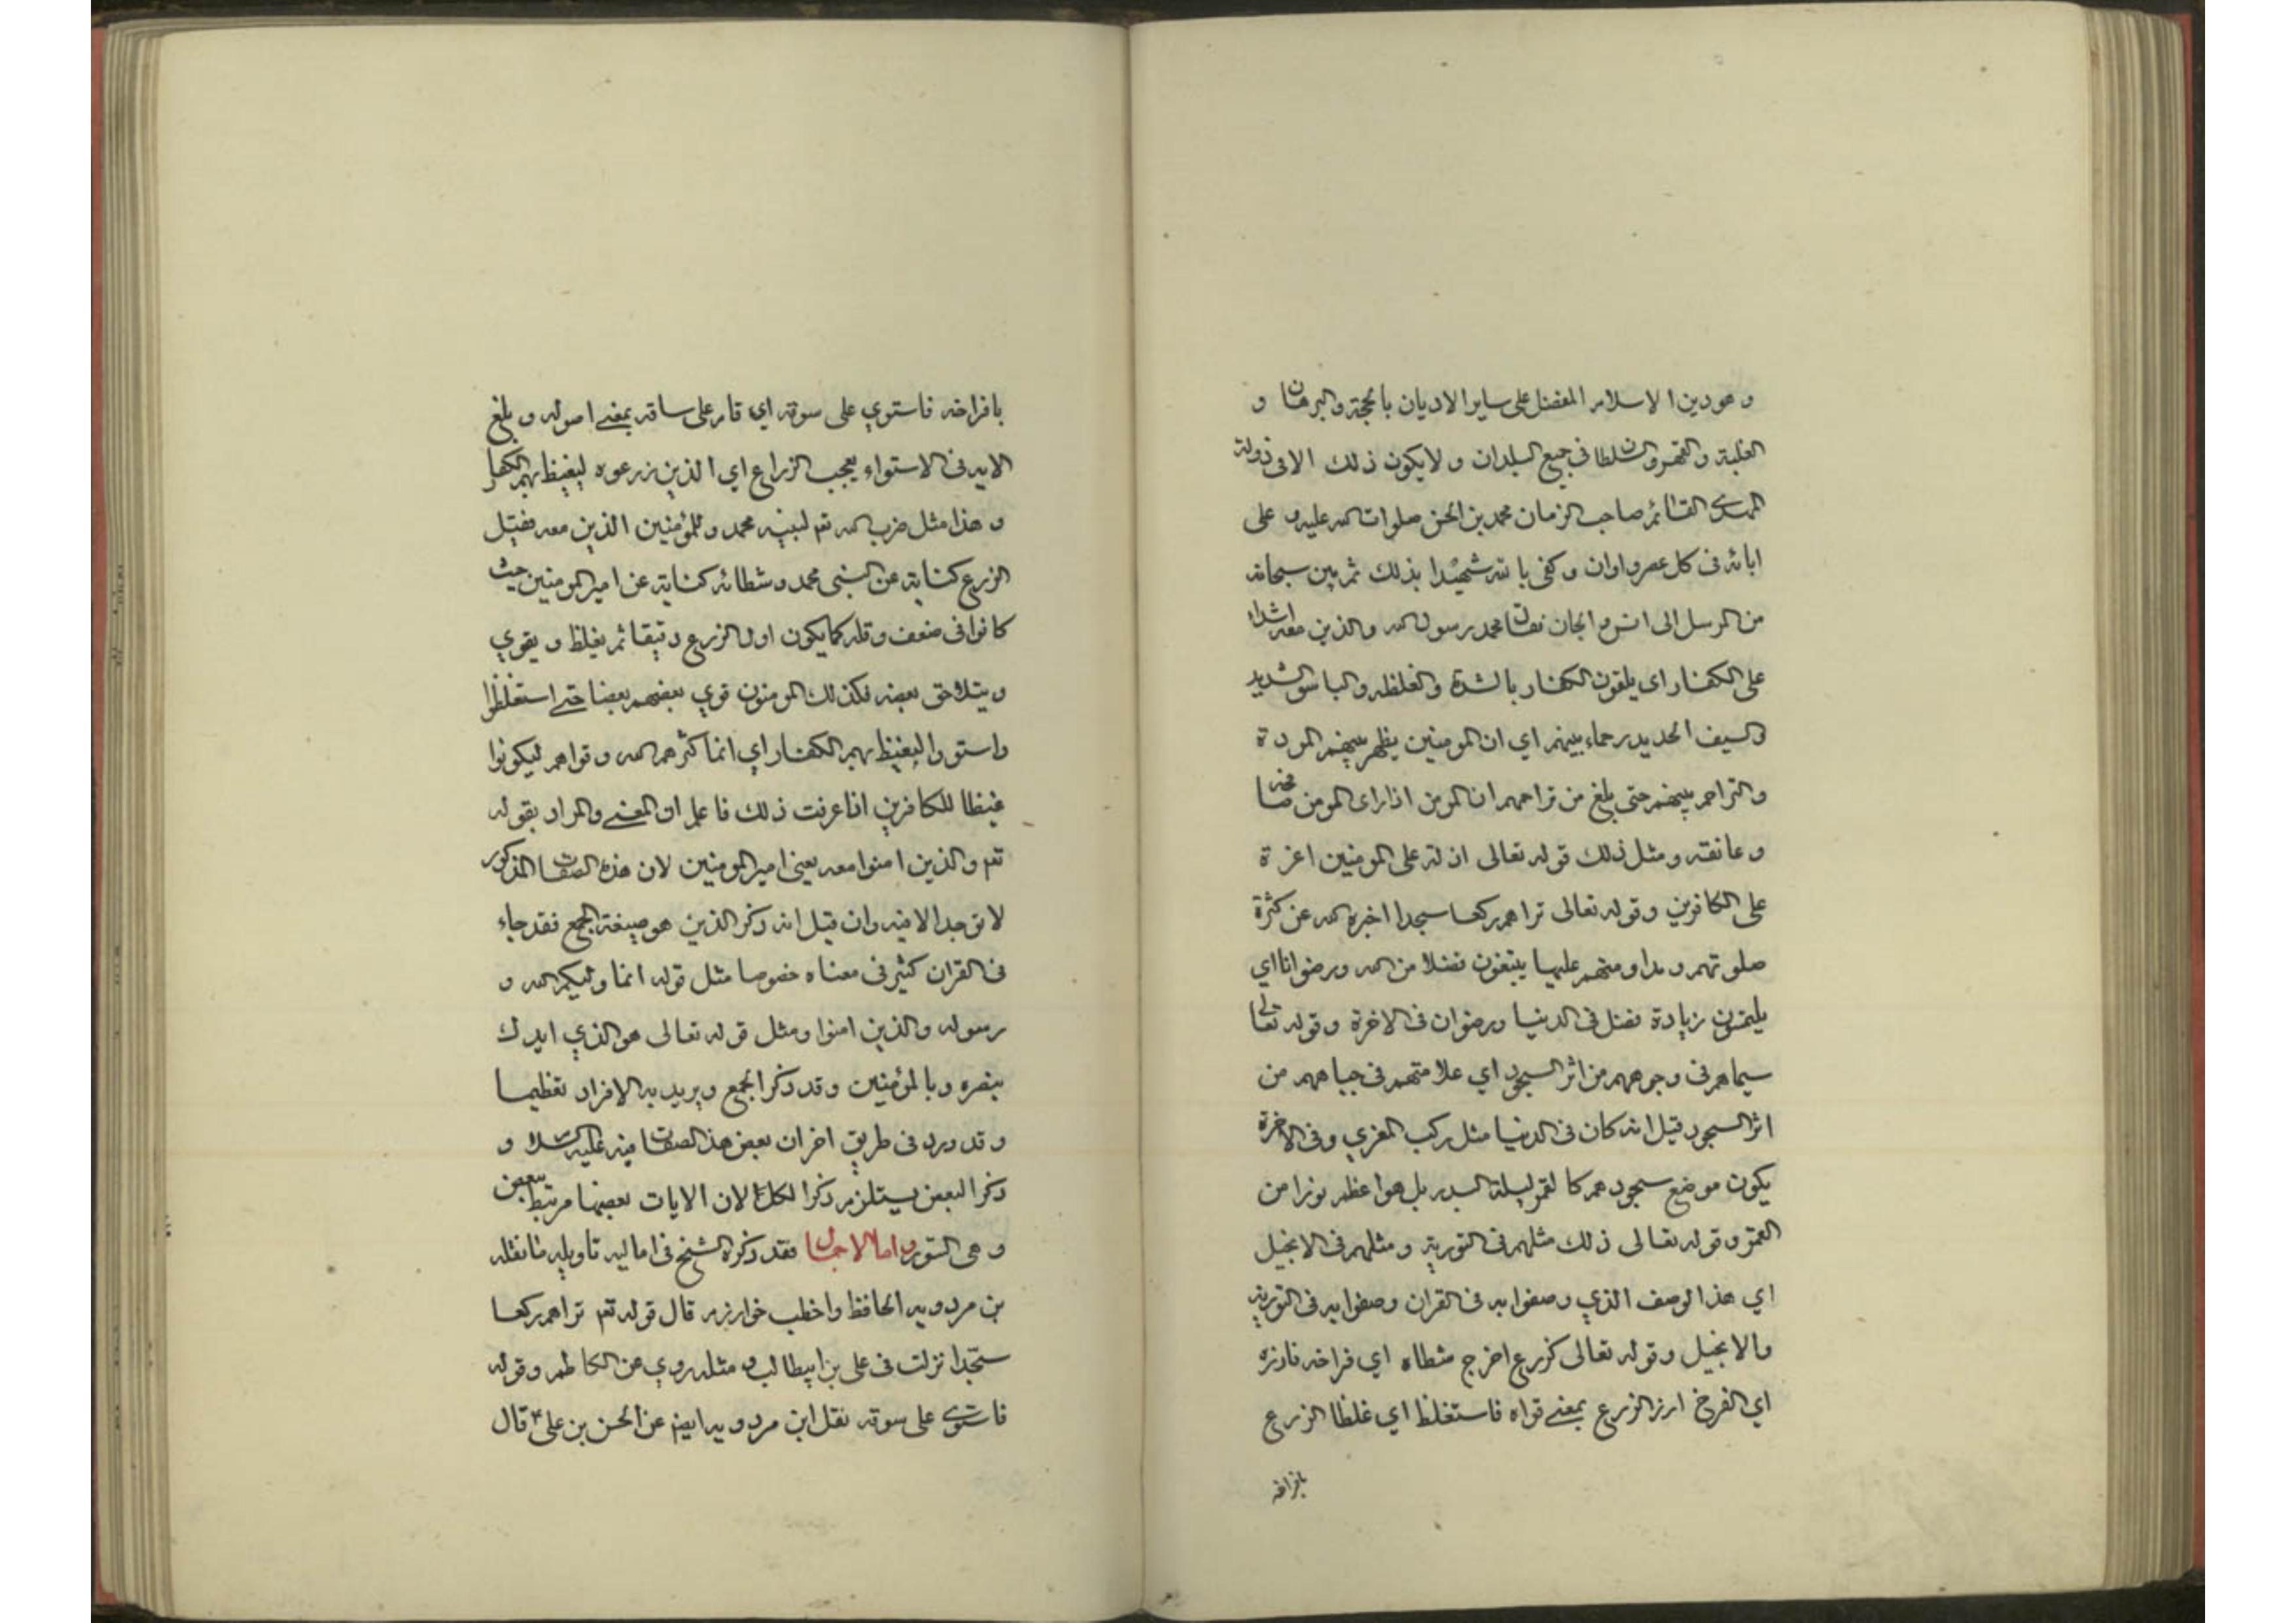 و هو دين الاسلام المفضل على ساير الاديان بالحجة والبرهان و
الغلبة والقهر والسلطان في جميع البلدان و لا يكون ذلك الا في دولة
المهدي القائم صاحب الزمان محمد بن الحسن صلوات الله عليه و على
ابائه في كل عصر واوان وكفى بالله شهيدا بذلك ثم بين سبحانه
من المرسل الى الانس والجان فقال محمد رسول الله والذين معه اشداء
على الكفار اى يلقون الكفار بالشدة والغلظه والباس الشديد
والسيف الحديد رحماء بينهم اي ان المومنين يظهر بينهم المودة
والتراحم بينهم حتى بلغ من تراحمهم ان المومن اذا راى المومن صافحه
وعانقه ومثل ذلك قوله تعالى اذلة على المومنين اعزة
على الكافرين وقوله تعالى تراهم ركعا سجدا اخبره الله عن كثرة
صلوتهم ومداومتهم عليها يبتغون فضلا من الله ورضوانا اي
يلتمسون زيادة فضل في الدنيا ورضوان في الاخرة وقوله تعالى
سيماهم في وجوههم من اثر السجود اي علامتهم في جباههم من
اثر السجود قيل انه كان في الدنيا مثل ركب المعزي وفي الاخرة
يكون موضع سجودهم كالقمر ليلة البدر بل هو اعظم نورا من
القمر وقوله تعالى ذلك مثلهم في التورية ومثلهم في الانجيل
اي هذا الوصف الذي وصفوا به في القران وصفوا به في التورية
والانجيل وقوله تعالى كزرع اخرج شطاه اي فراخه فازره
اي الفرخ ازر الزرع بمعنى قواه فاستغلظ اي غلظا الزرع
بافراخه
بافراخه فاستوي على سوقه اي قام على ساقه بمعنى اصوله و بلغ
الابد في الاستواء يعجب الزراع اي الذين زرعوه ليغيظ بهم الكفار
و هذا مثل ضرب الله تع لنبيه محمد و للمؤمنين الذين معه فقيل
الزرع كناية عن النبي محمد و شطائه كناية عن امير المومنين حيث
كانوا في ضعف وقله كما يكون اول الزرع دقيقا ثم يغلظ و يقوي
ويتلاحق بعضه فكذلك المومنون قوي بعضهم بعضا حتى استغلظوا
واستووا ليغيظ بهم الكفار اي انما كثرهم الله وقواهم ليكونوا
غيظا للكافرين اذا عرفت ذلك فاعلم ان المعنى والمراد بقوله
تع والذين امنوا معه يعني امير المومنين لان هذه الصفات المذكور
لا توجد الا فيه وان قيل انه ذكر الذين هو صيغة الجمع فقد جاء
في القران كثير في معناه خصوصا مثل قوله انما وليكم الله و
رسوله والذين امنوا ومثل قوله تعالى هو الذي ايدك
بنصره وبالمؤمنين وقد ذكر الجمع ويريد به الافراد تعظيما
و قد ورد في طريق اخر ان بعض هذ الصفات فيه عليه السلام و
ذكر البعض يستلزم ذكر الكل لان الايات بعضها مرتبط ببعض
و هى السور و اما الاجمال فقد ذكره الشيخ في اماليه تاويله ما نقله
بن مردويه الحافظ واخطب خوارزم قال قوله تع تراهم ركعا
سجدا نزلت في على بن ابيطالب و مثله روي عن الكاظم وقوله
فاستوى على سوقه نقل ابن مردويه ايضا عن الحسن بن على قال